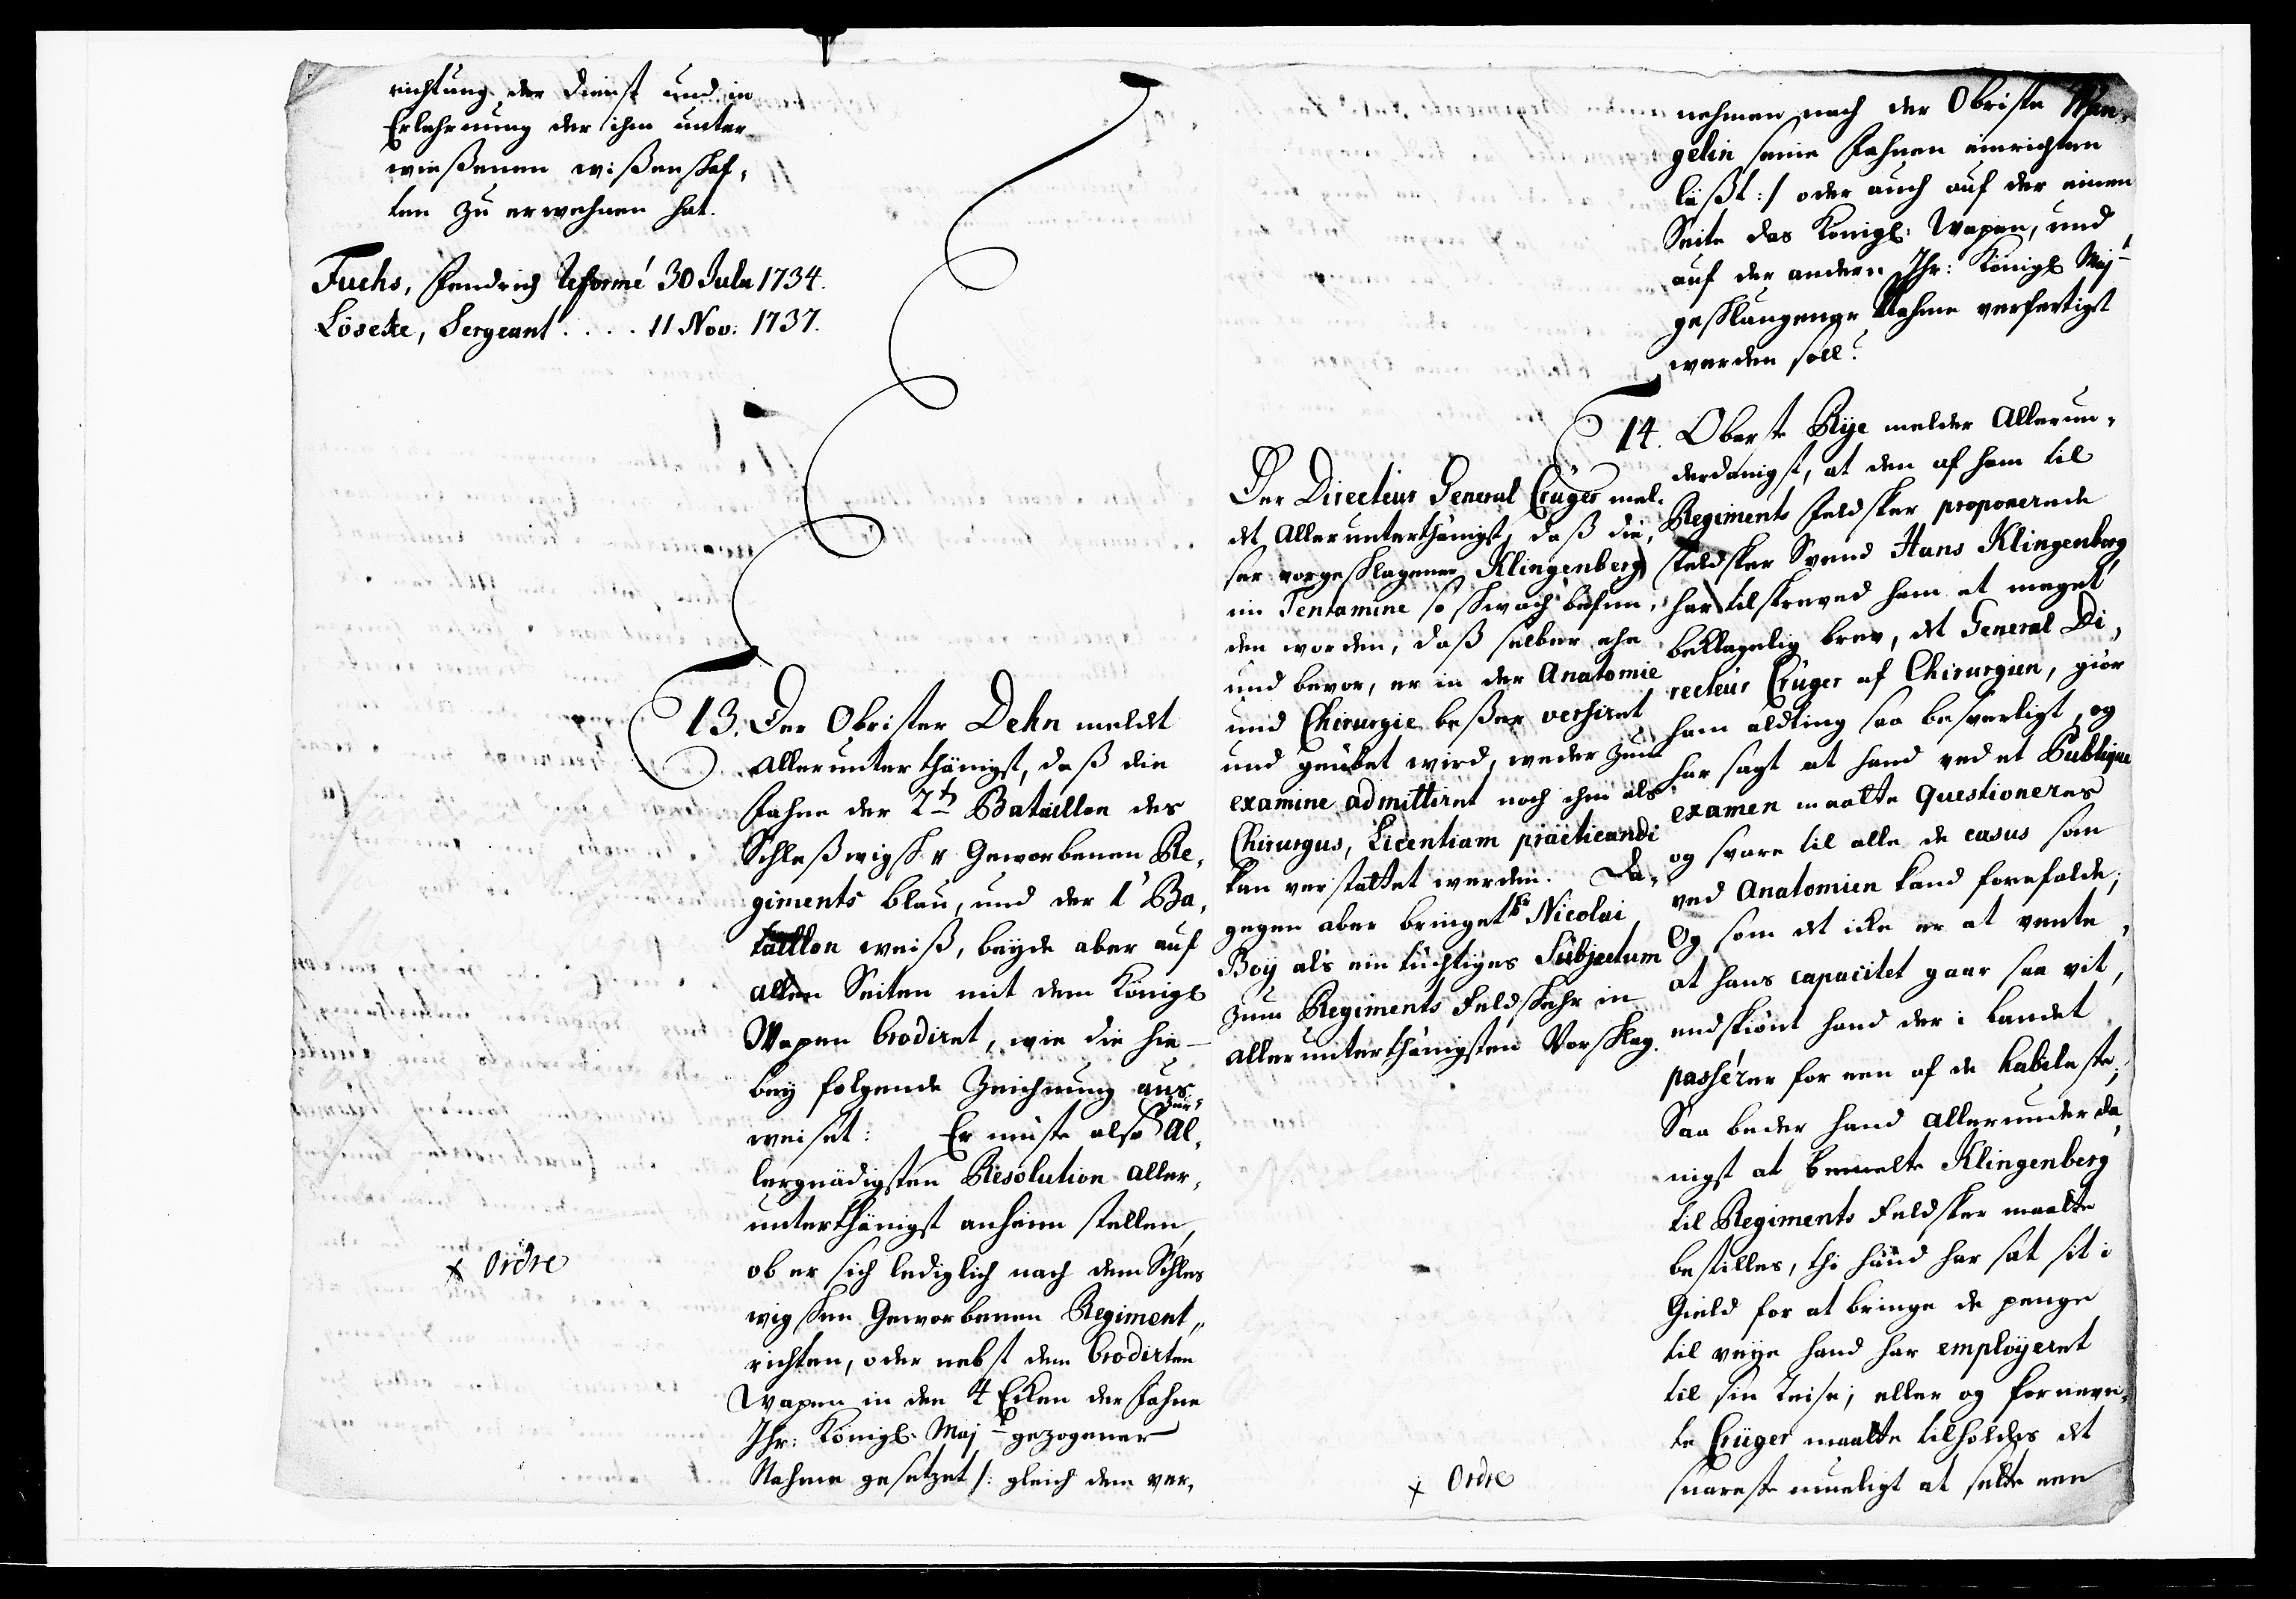 richtung der Dienst und in
Erlehrnung der ihm unter
wießenen wißenschaf,
ten zu erwehnen hat.
Fuchs, Fendrich Reformé 30 Julii 1734.
Lösecke, Sergeant .... 11 Nov: 1737.
13. Der Obrister Dehn meldet
allerunterthänigst, daß die
Fahne der 2t Bataillon des
Schleßwigsch: Geworbenen Re,
giments blau, und der 1t Ba,
taillon weiß, beyde aber auf
allen Seiten mit dem Königl
Wapen brodiret, wie die hie-
bey folgende Zeichnung aus,
weiset: Er müste also zur Al,
lergnädigsten Resolution aller,
unterthänigst anheim stellen,
ob er sich lediglich nach dem Schles
wigschen Geworbenen Regiment,,
richten, oder nebst dem brodirten
Wapen in den 4 Ecken der Fahne
Ihr: Königl. Majt gezogener
Nahme gesetzet /: gleich dem ver,
x Ordre
nehmen nach der Obriste Wan,
gelin seine Fahnen einrichten
läßt:/ oder auch auf der einen
Seite das Königl: Wapen, und
auf der andern Ihr: Königl Majt
geschlungener Nahme verfertigt
werden soll?
Der Directeur General Crüger mel,
det allerunterthänigst, daß die,
ser vorgeschlagener Klingenberg
im Tentamine so schwach befun,
den worden, daß selber ehe
und bevor, er in der Anatomie
und Chirurgie beßer versiret
und geübet wird, weder zum
examine admittiret noch ihm als
Chirurgus, Licentiam practicandi
kan verstattet werden. Da,
gegen aber bringet Er Nicolai
Boy als ein tüchtiges Subjectum
zum Regiments Feldscher in
allerunterthänigsten Vorschlag.
x Ordre
14. Oberste Rye melder Allerun,
derdanigst, at den af ham til
Regiments Feldskier proponerede
Feldskier Svend Hans Klingenberg
har tilskreved ham et meget
beklagelig brev, at General Di,
recteur Crüger af Chirurgien, giør
ham alting saa besverligt, og
har sagt at hand ved et Publique
examen maatte questioneres
og svare til alle de casus som
ved Anatomien kand forefalde;
Og som det icke er at vente,
at hans capacitet gaar saa vit,
endskiønt hand der i Landet
passérer for een af de habileste;
Saa beder hand allerunderda,
nigst at bemelte Klingenberg
til Regiments Feldskier maatte
bestilles, thi hand har sat sit i
Gield for at bringe de penge
til veye hand har employeret
til sin Reise; eller og forneven,
te Crüger maatte tilholdes det
snareste mueligt at sette een